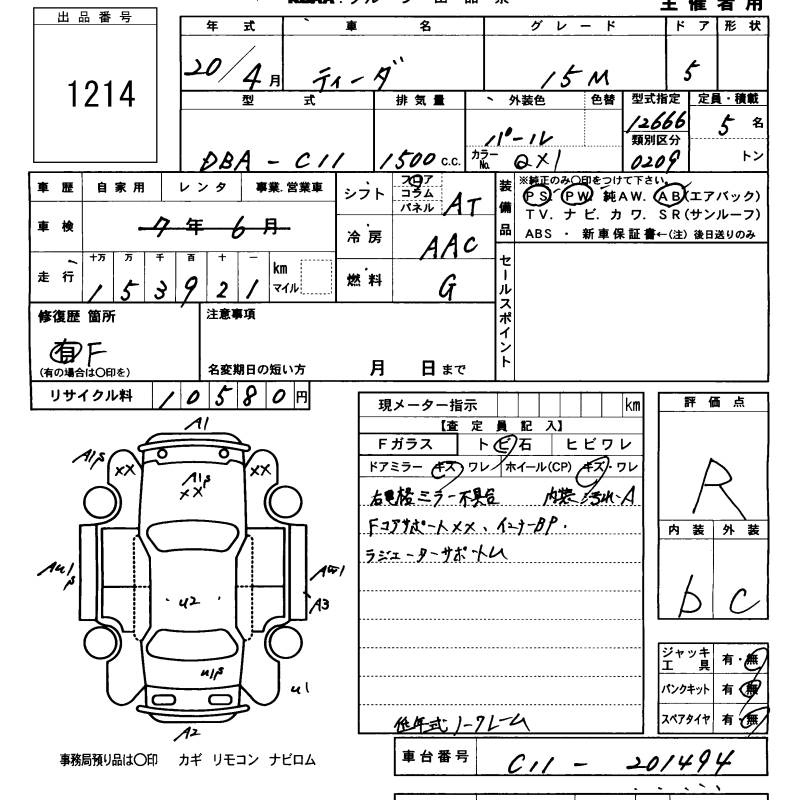 出品番号
1214
主催者用
年式 車名 グレード ドア 形状
20/4月 ティーダ 15M 5
型式 排気量 外装色 色替 型式指定 定員・積載
12666 5名
類別区分
DBA-C11 1500c.c. パール カラーNo. QX1 0209 トン
車歴 自家用 レンタ 事業.営業車 シフト フロア コラム パネル AT
装備品 ※純正のみ○印をつけて下さい。
PS. PW. 純AW. AB(エアバック)
TV. ナビ. カワ. SR(サンルーフ)
ABS ・ 新車保証書←(注) 後日送りのみ
車検 7年6月 冷房 AAC
走行 十万 万 千 百 十 一 km マイル
153921 燃料 G
セールスポイント
修復歴 箇所 注意事項
有 F
(有の場合は○印を) 名変期日の短い方 月 日まで
リサイクル料 10580円
現メーター指示 km
【査定員記入】
Fガラス トビ石 ヒビワレ
ドアミラー キズ・ワレ ホイール(CP) キズ・ワレ
右電格ミラー不具合 内装汚れA
FコアサポートXX、インナーBP.
ラジエーターサポートU
低年式ノークレーム
評価点
R
内装 外装
b C
ジャッキ工具 有・無
パンクキット 有・無
スペアタイヤ 有・無
A1
A1P
XX
XX
A1P
XX
AU1P
U2
AW1
A3
U1P
U1
A2
事務局預り品は○印 カギ リモコン ナビロム
車台番号 C11-201494